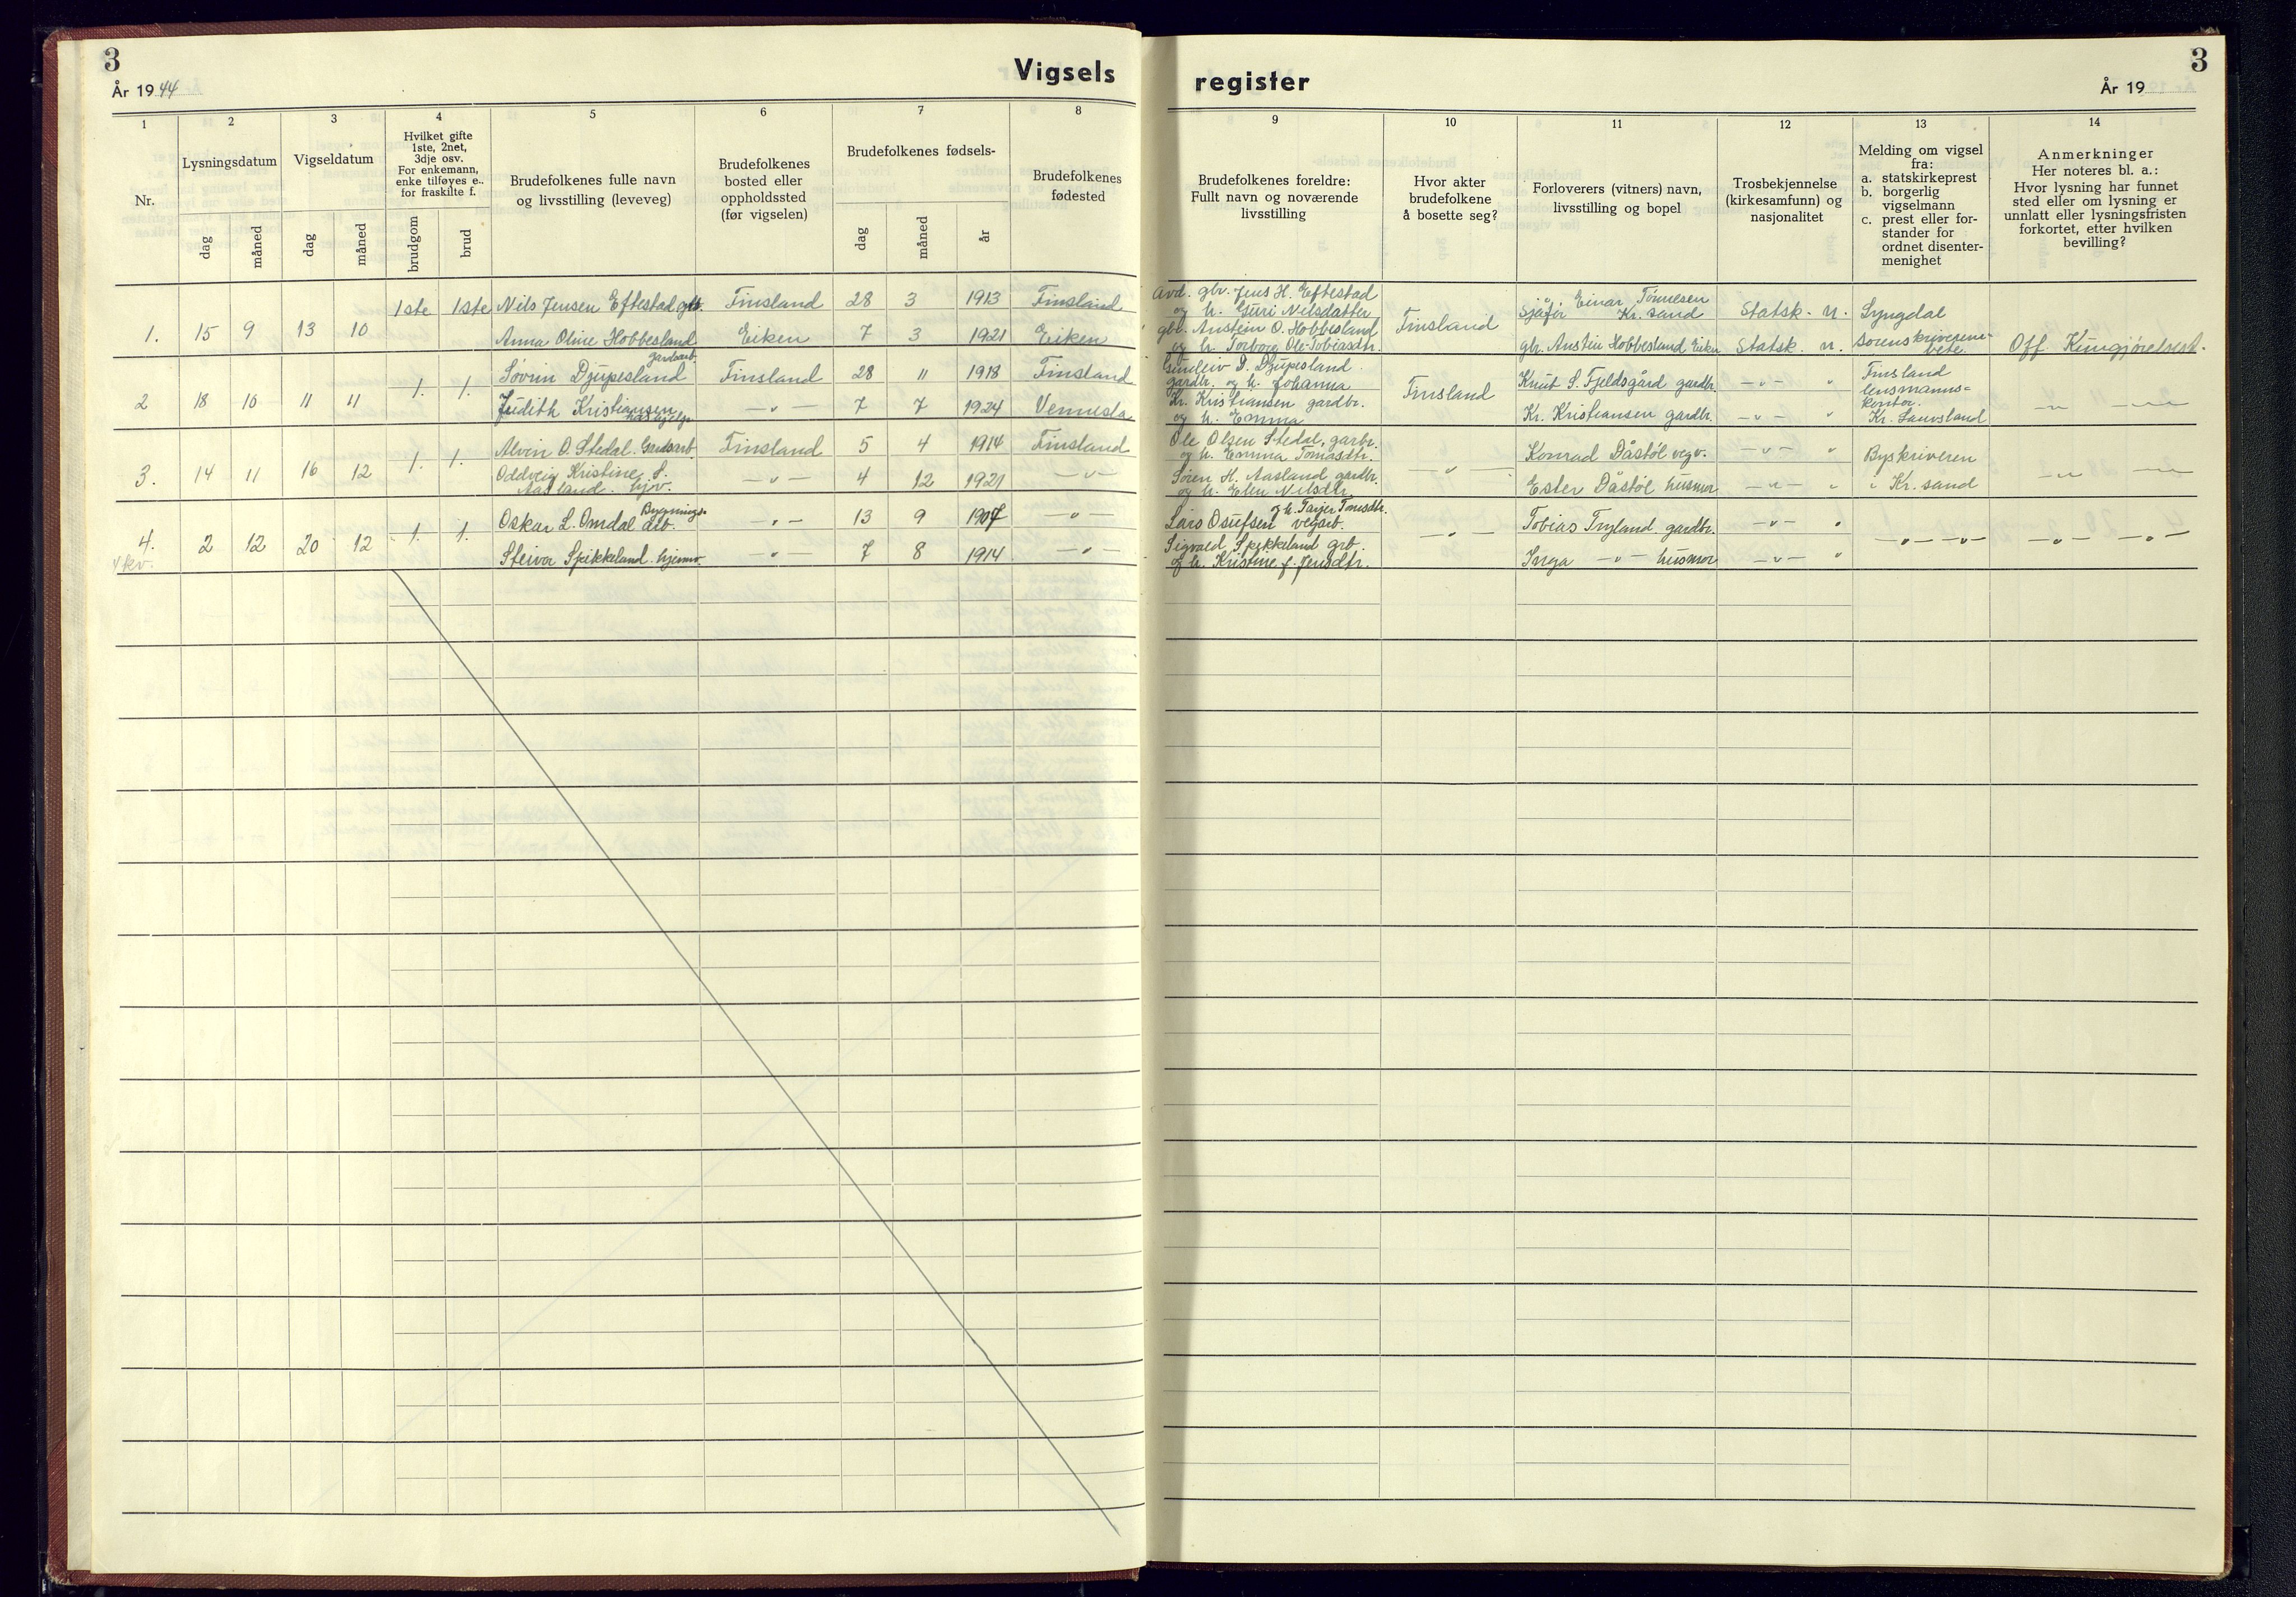 3
År 19 44
Vigsels
register
År 19
3
1
2
3
4
5
6
7
8
9
10
11
12
13
14
Nr.
Lysningsdatum
Vigseldatum
Hvilket gifte
1ste, 2net,
3dje osv.
For enkemann,
enke tilføyes e..
for fraskilte f.
Brudefolkenes fulle navn
og livsstilling (leveveg)
Brudefolkenes
bosted eller
oppholdssted
(før vigselen)
Brudefolkenes fødsels-
Brudefolkenes
fødested
Brudefolkenes foreldre:
Fullt navn og noværende
livsstilling
Hvor akter
brudefolkene
å bosette seg?
Forloverers (vitners) navn,
livsstilling og bopel
Trosbekjennelse
(kirkesamfunn) og
nasjonalitet
Melding om vigsel
fra:
a. statskirkeprest
b. borgerlig
vigselmann
c. prest eller for-
stander for
ordnet disenter-
menighet
Anmerkninger
Her noteres bl. a.:
Hvor lysning har funnet
sted eller om lysning er
unnlatt eller lysningsfristen
forkortet, etter hvilken
bevilling?
dag
måned
dag
måned
brudgom
brud
dag
måned
år
1ste 1ste Nils Jensen Eftestad gbr. Finsland 28 3 1913 Finsland
1. 15 9 13 10
Anna Oline Hobbesland Eiken 7 3 1921 Eiken
avd. gbr. Jens H. Eftestad
og h. Guri Nilsdatter
gbr. Anstein O. Hobbesland
og h. Torborg Ole-Tobiasdtr.
Finsland
Sjåfør Einar Tønnesen
Kr. sand
gbr. Anstein Hobbesland Eiken
Statsk. n.
Statsk. n.
Lyngdal
sorenskriverem-
bete
Off. Kungjørelsest.
2 18 10 11 11 1. 1.
Søvrin Djupesland gardsarb. Finsland 28 11 1918 Finsland
Judith Kristiansen -"- 7 7 1924 Vennesla
P. Djupesland
gardbr. og h. Johanna
Kr. Kristiansen gardbr.
og h. Emma
Finsland
Knut S. Fjeldsgård gardbr. -"- "
Kr. Kristiansen gardbr. -"- "
Finsland
lensmanns-
kontor.
Kr. Lauvsland
-"- -"-
3. 14 11 16 12 1. 1.
Alvin O. Stedal. Gardsarb. Finsland 5 4 1914 Finsland
Oddveig Kristine S.
Aasland. hjv. -"- 4 12 1921 -"-
Ole Olsen Stedal, garbr.
og h. Emma Tomasdtr.
Søren H. Aasland gardbr.
og h. Elen Nilsdtr.
-"-
Konrad Dåstøl vegv. -"- "
Ester Dåstøl husmor -"- "
Byskriveren
" Kr. sand
-"- -"-
4. 2 12 20 12 1. 1.
4 kv.
Oskar L. Omdal Bygnings-
arb. -"- 13 9 1907 -"-
Steiva Spikkeland. hjemv. -"- 7 8 1914 -"-
Lars Osufsen vegarb.
Sigvald Spikkeland grb.
og h. Kristine f. Jensdtr.
-"-
Tobias Tryland gardbr. -"- "
Inga -"- husmor -"- "
-"- -"- -"- -"-